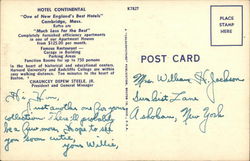 HOTEL CONTINENTAL
"One of New England's Best Hotels"
Cambridge, Mass.
Rates are
"Much Less For the Best"
Completely furnished efficiency apartments
in one of our Apartment Houses
from $125.00 per month
Famous Restaurant —
Garage in Building
Parking Areas
Function Rooms for up to 750 persons
In the heart of historical and educational centers.
Harvard University and Radcliffe College are within
easy walking distance. Ten minutes to the heart of
Boston.
CHAUNCEY DEPEW STEELE, JR.
President and General Manager
K7827
POST CARD
PLACE
STAMP
HERE
Hi Hon,
Just another one for your
collection. There'll probably
be a few more. Hope to see
you soon
your Willie,
Mrs. William H. Jackson
Sunset Lane
Ashokan, New York